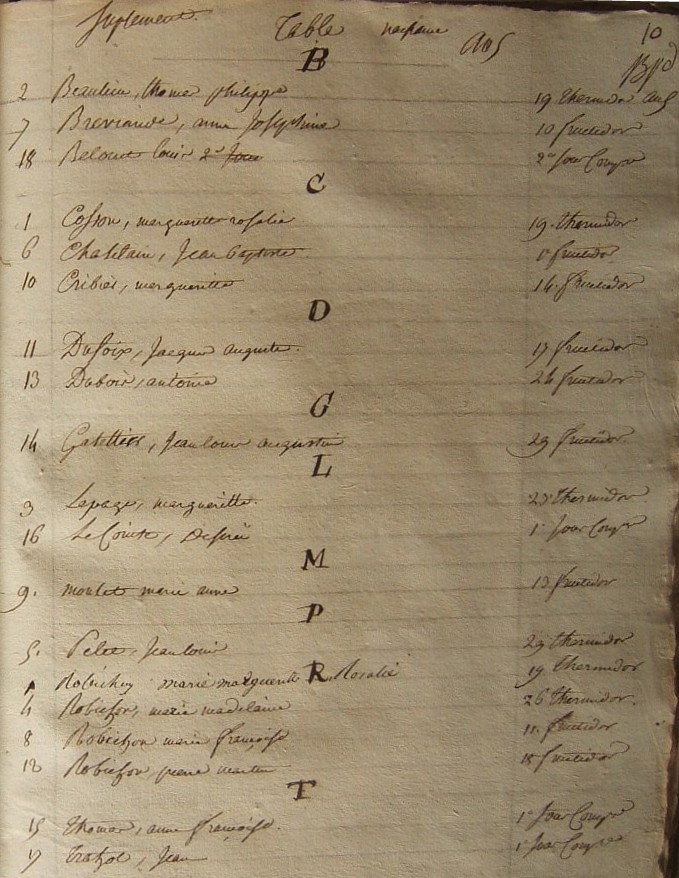 Suplement. Table naissance an 5 10
B
2 Beaulieu, thomas philippe 19 thermidor an 5
7 Brevrande, anne Josephine 10 fructidor
18 Belout louis 2e Jour Comp
C
1 Cosson, margueritte rosalie 19. thermidor
6 Chastelain, Jean baptiste 1er fructidor
10 Cribier, margueritte 14. fructidor
D
11 Dufoix, Jacques auguste. 17 fructidor
13 Dubois, antoine 24 fructidor
G
14 Jean louis augustin 29 fructidor
L
3 Lepage, margueritte. 23 thermidor
16 Le Comte, Desiré 1er Jour Comp
M
9. moulet marie anne 13 fructidor
P
5. Petit, Jean louis 29 thermidor
R
1 Robichon marie marguerite Rosalie 19 thermidor
4 Robichon, marie madelaine 26 thermidor.
8 Robichon marie françoise 11. fructidor
12 Robichon, pierre martin 15 fructidor
T
15 thomas, anne françoise. 1er Jour Comp
17 Jean 1er Jour Comp